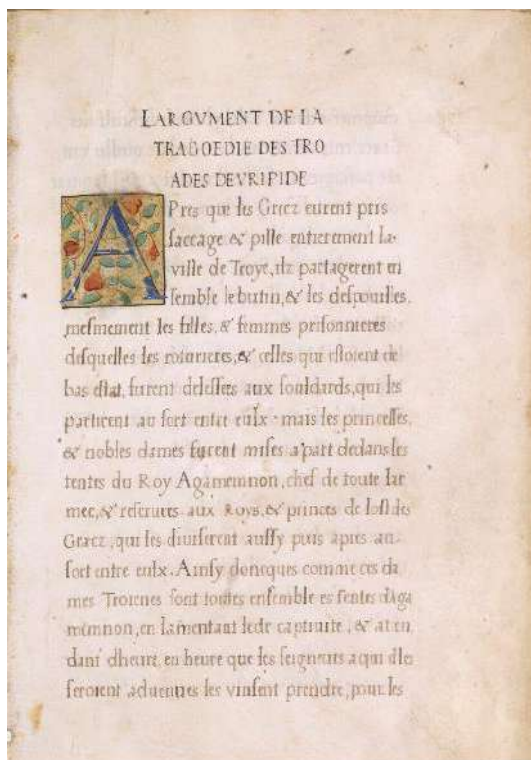 LARGVMENT DE LA
TRAGOEDIE DES TRO
ADES DEVRIPIDE
APres que les Grecz eurent pris
saccage & pille entierement la
ville de Troye, ilz partagerent en
semble le butin, & les despouilles,
mesmement les filles, & femmes prisonnieres
desquelles les roturieres, & celles qui estoient de
bas estat, furent delessees aux souldards, qui les
partirent au sort entre eulx. mais les princesses,
& nobles dames furent mises a part dedans les
tentes du Roy Agamemnon, chef de toute lar
mee, & reseruees aux Roys, & princes de lost des
Grecz, qui les diuiserent aussy puis apres au
sort entre eulx. Ainsy doncques comme ces da
mes Troienes sont toutes ensemble es tentes daga
memnon, en lamentant lede captiuite, & aten
dant dheure en heure que les seigneurs a qui elles
seroient aduenues les vinsent prendre, pour les